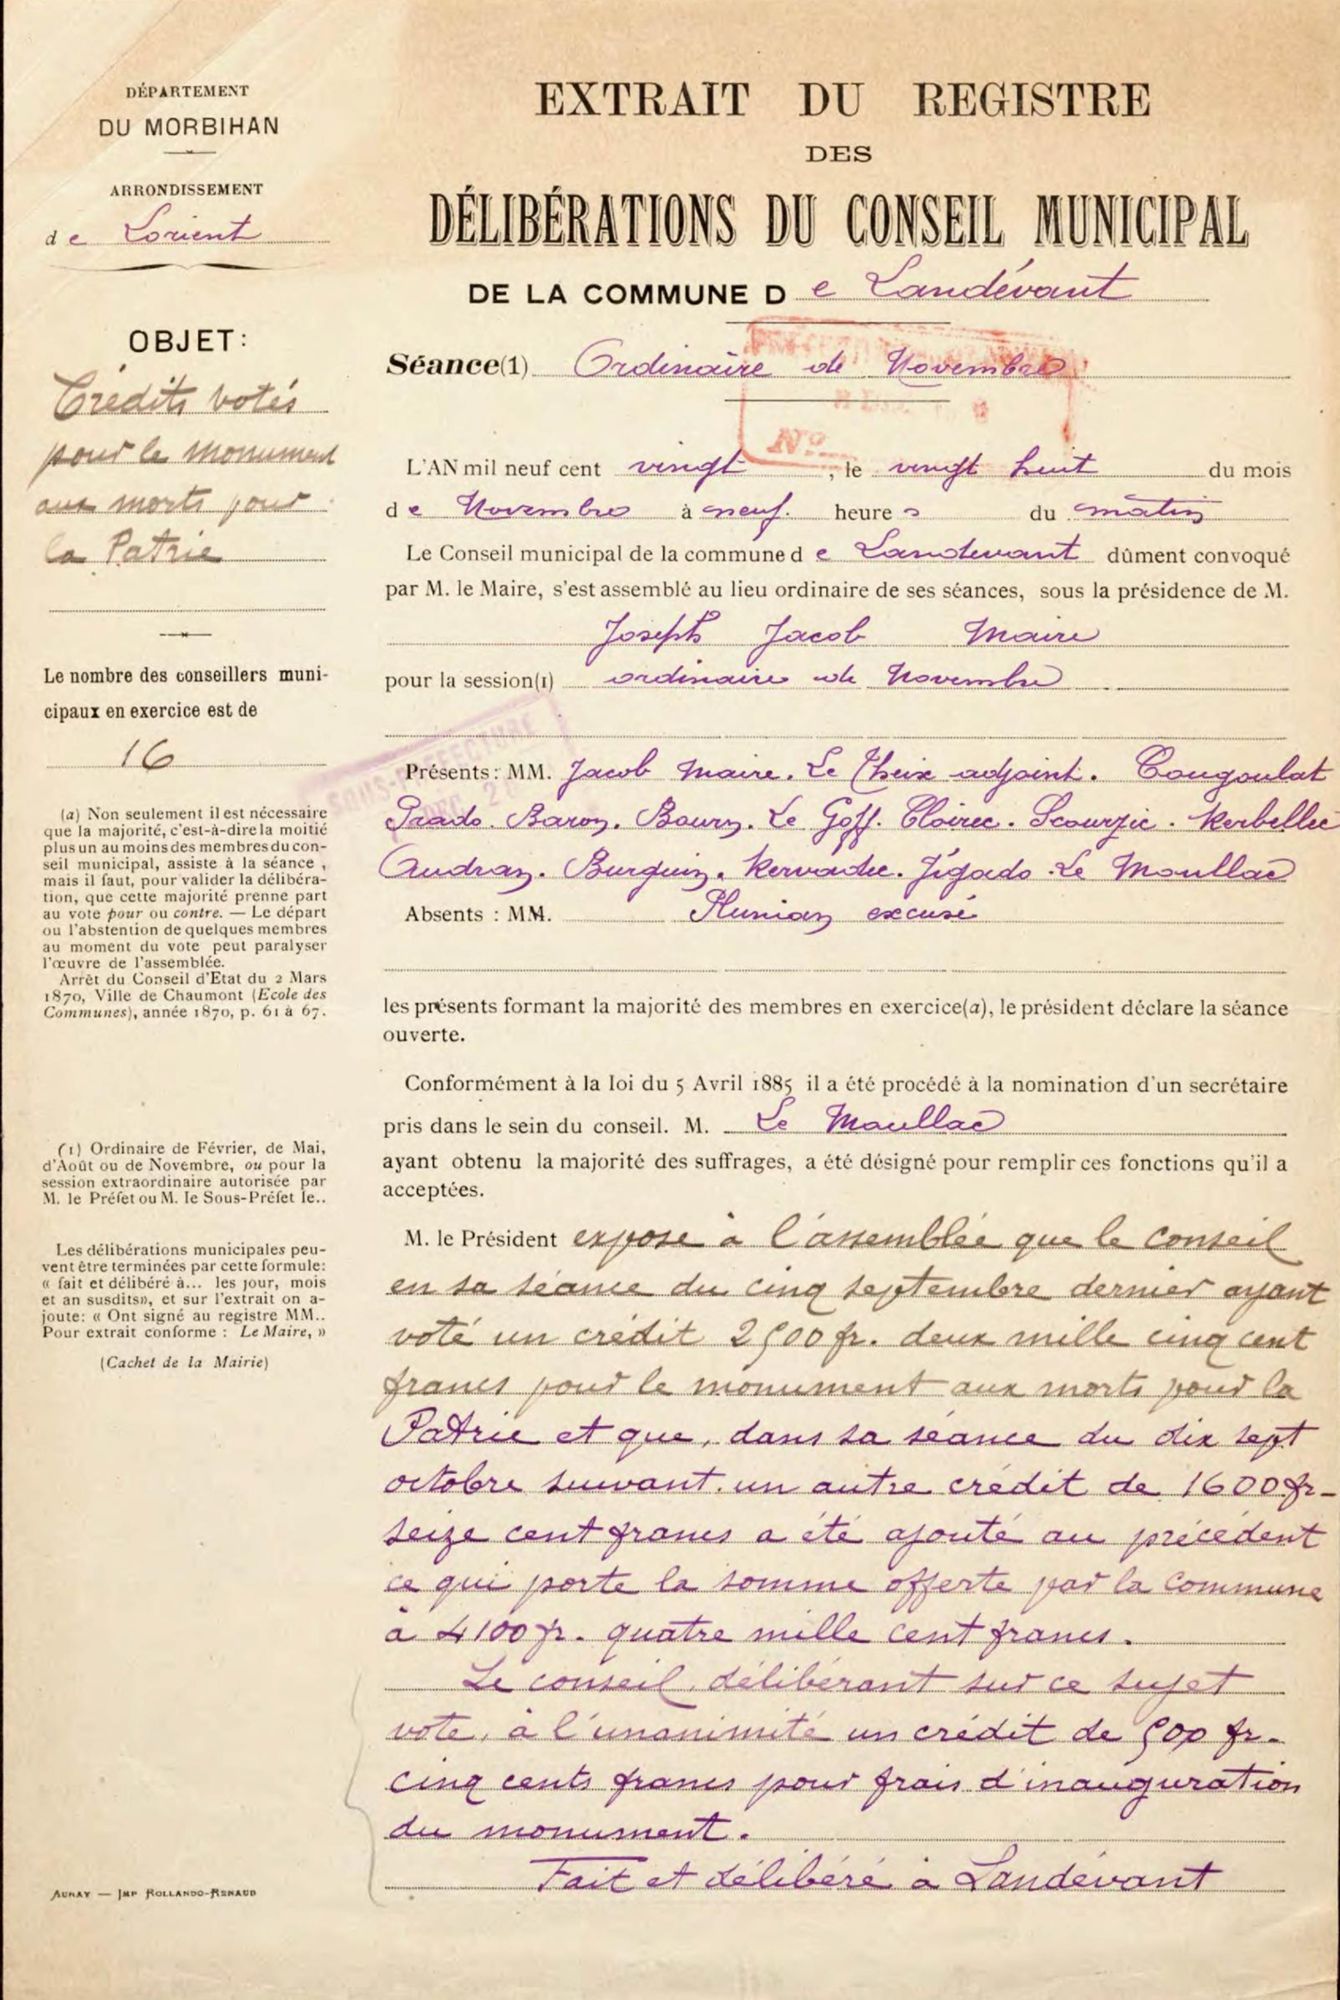 DÉPARTEMENT
DU MORBIHAN
ARRONDISSEMENT
de Lorient
OBJET:
Crédits votés
pour le monument
aux morts pour
la Patrie
Le nombre des conseillers muni-
cipaux en exercice est de
16
(a) Non seulement il est nécessaire
que la majorité, c'est-à-dire la moitié
plus un au moins des membres du con-
seil municipal, assiste à la séance,
mais il faut, pour valider la délibéra-
tion, que cette majorité prenne part
au vote pour ou contre. — Le départ
ou l'abstention de quelques membres
au moment du vote peut paralyser
l'œuvre de l'assemblée.
Arrêt du Conseil d'Etat du 2 Mars
1870, Ville de Chaumont (Ecole des
Communes), année 1870, p. 61 à 67.
(1) Ordinaire de Février, de Mai,
d'Août ou de Novembre, ou pour la
session extraordinaire autorisée par
M. le Préfet ou M. le Sous-Préfet le..
Les délibérations municipales peu-
vent être terminées par cette formule:
« fait et délibéré à... les jour, mois
et an susdits», et sur l'extrait on a-
joute: « Ont signé au registre MM..
Pour extrait conforme : Le Maire, »
(Cachet de la Mairie)
AURAY — IMP ROLLANDO-RENAUD
EXTRAIT DU REGISTRE
DES
DÉLIBÉRATIONS DU CONSEIL MUNICIPAL
DE LA COMMUNE De Landévant
Séance(1) Ordinaire de Novembre
No
L'AN mil neuf cent vingt, le vingt huit du mois
de Novembre à neuf. heures du matin
Le Conseil municipal de la commune de Landevant dûment convoqué
par M. le Maire, s'est assemblé au lieu ordinaire de ses séances, sous la présidence de M.
Joseph Jacob Maire
pour la session(1) ordinaire de Novembre
SOUS-PREFECTURE
Présents: MM. Jacob Maire. Le Theix adjoint. Cougoulat
Prado. Baron. Bourn. Le Goff. Cloirec. Scourzic. Kerbellec
Audran. Burguin. Kervadec. Jégado. Le Moullac
Absents : MM. Plunian excusé
les présents formant la majorité des membres en exercice(a), le président déclare la séance
ouverte.
Conformément à la loi du 5 Avril 1885 il a été procédé à la nomination d'un secrétaire
pris dans le sein du conseil. M. Le Moullac
ayant obtenu la majorité des suffrages, a été désigné pour remplir ces fonctions qu'il a
acceptées.
M. le Président expose à l'assemblée que le conseil
en sa séance du cinq septembre dernier ayant
voté un crédit 2500 fr. deux mille cinq cent
francs pour le monument aux morts pour la
Patrie et que, dans sa séance du dix sept
octobre suivant, un autre crédit de 1600 fr-
seize cent francs a été ajouté au précédent
ce qui porte la somme offerte par la commune
à 4100 fr. quatre mille cent francs.
Le conseil, délibérant sur ce sujet
vote, à l'unanimité un crédit de 500 fr-
cinq cents francs pour frais d'inauguration
du monument.
Fait et délibéré à Landévant